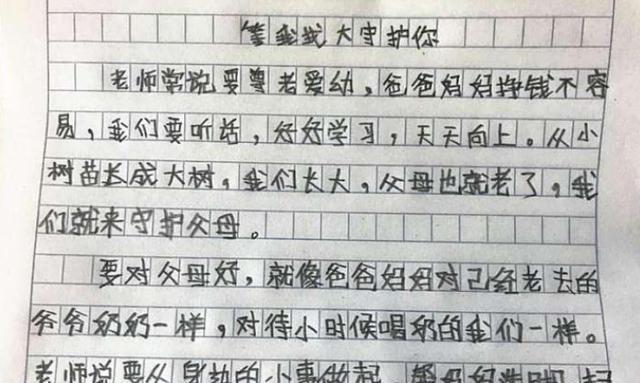 等我我大守护你
老师常说要尊老爱幼，爸爸妈妈挣钱不容
易，我们要听话，好好学习，天天向上。从小
树苗长成大树，我们长大，父母也就老了，我
们就来守护父母。
要对父母好，就像爸爸妈妈对己经老去的
爷爷奶奶一样，对待小时候喝奶的我们一样。
老师说要从身边的小事做起